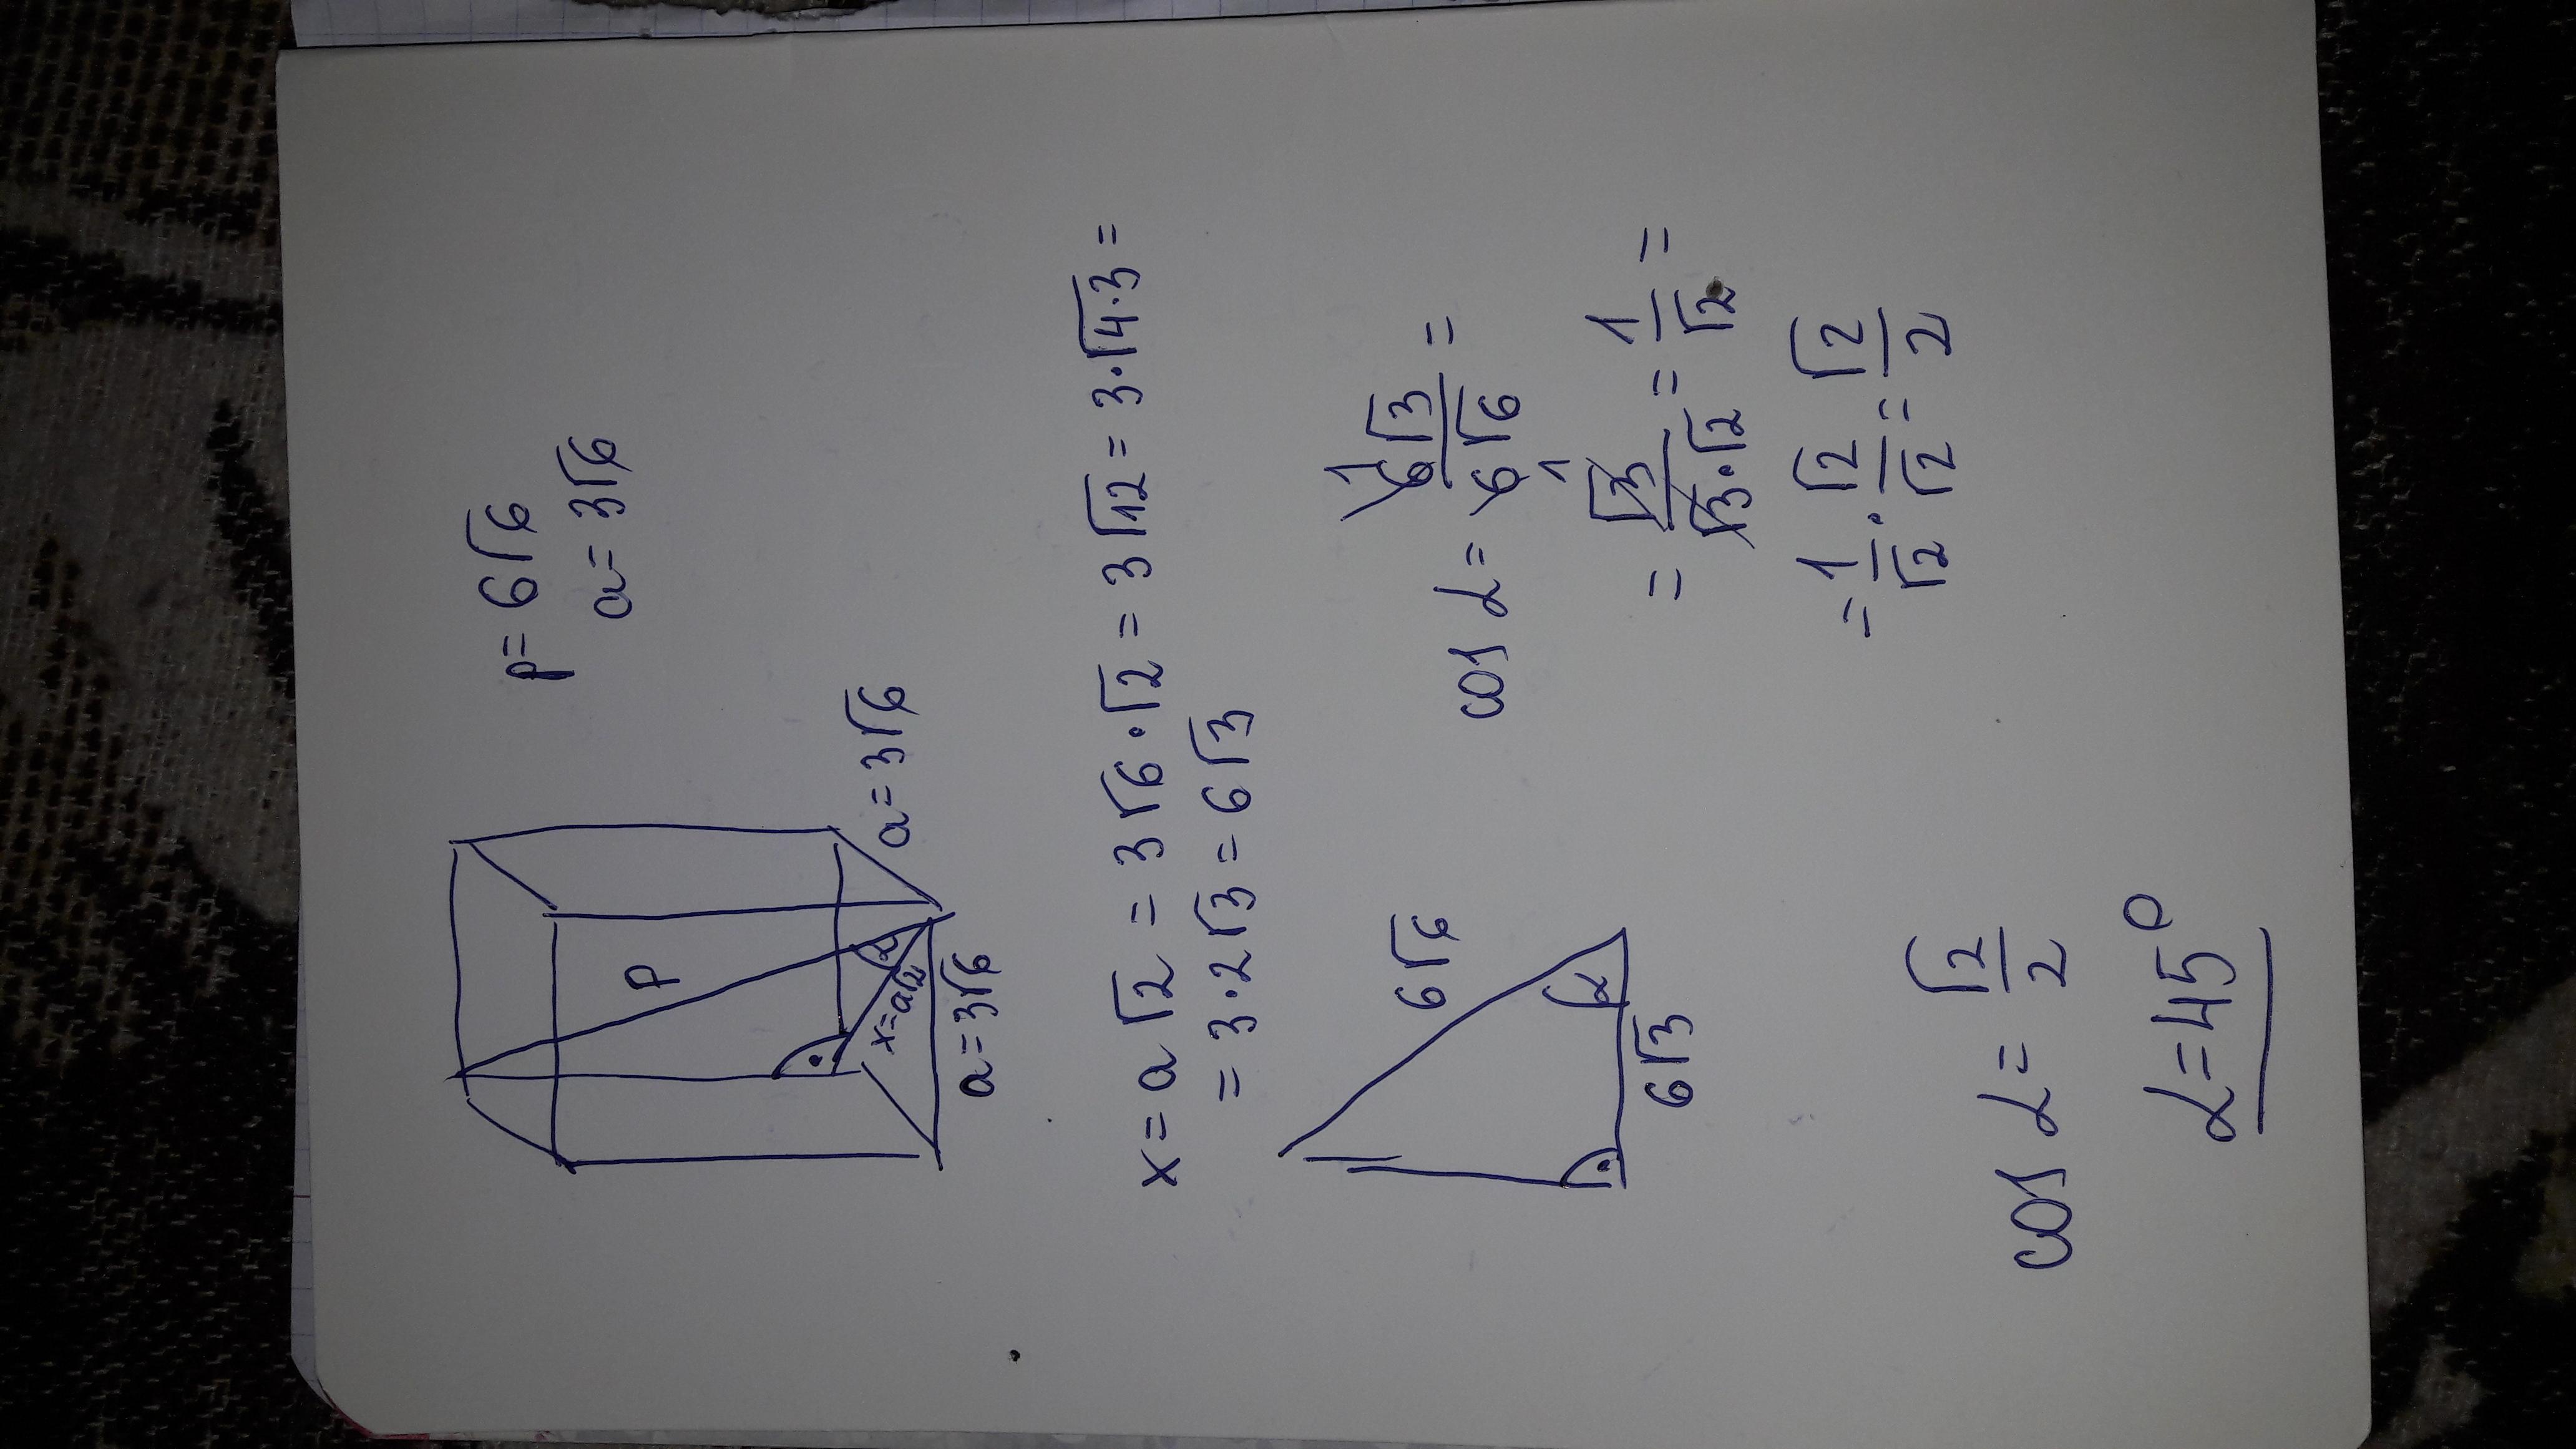 p = 6√6
a = 3√6
p
α
x = a√2
a = 3√6
a = 3√6
x = a√2 = 3√6 · √2 = 3√12 = 3 · √4·3 =
= 3 · 2√3 = 6√3
6√6
α
6√3
cos α = 6√3 / 6√6 =
1
1
= √3 / √3·√2 = 1/√2 =
= 1/√2 · √2/√2 = √2/2
cos α = √2/2
α = 45°